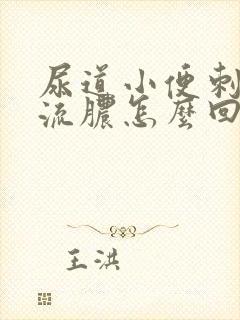 尿道小便刺
流膿怎麼回
王洪